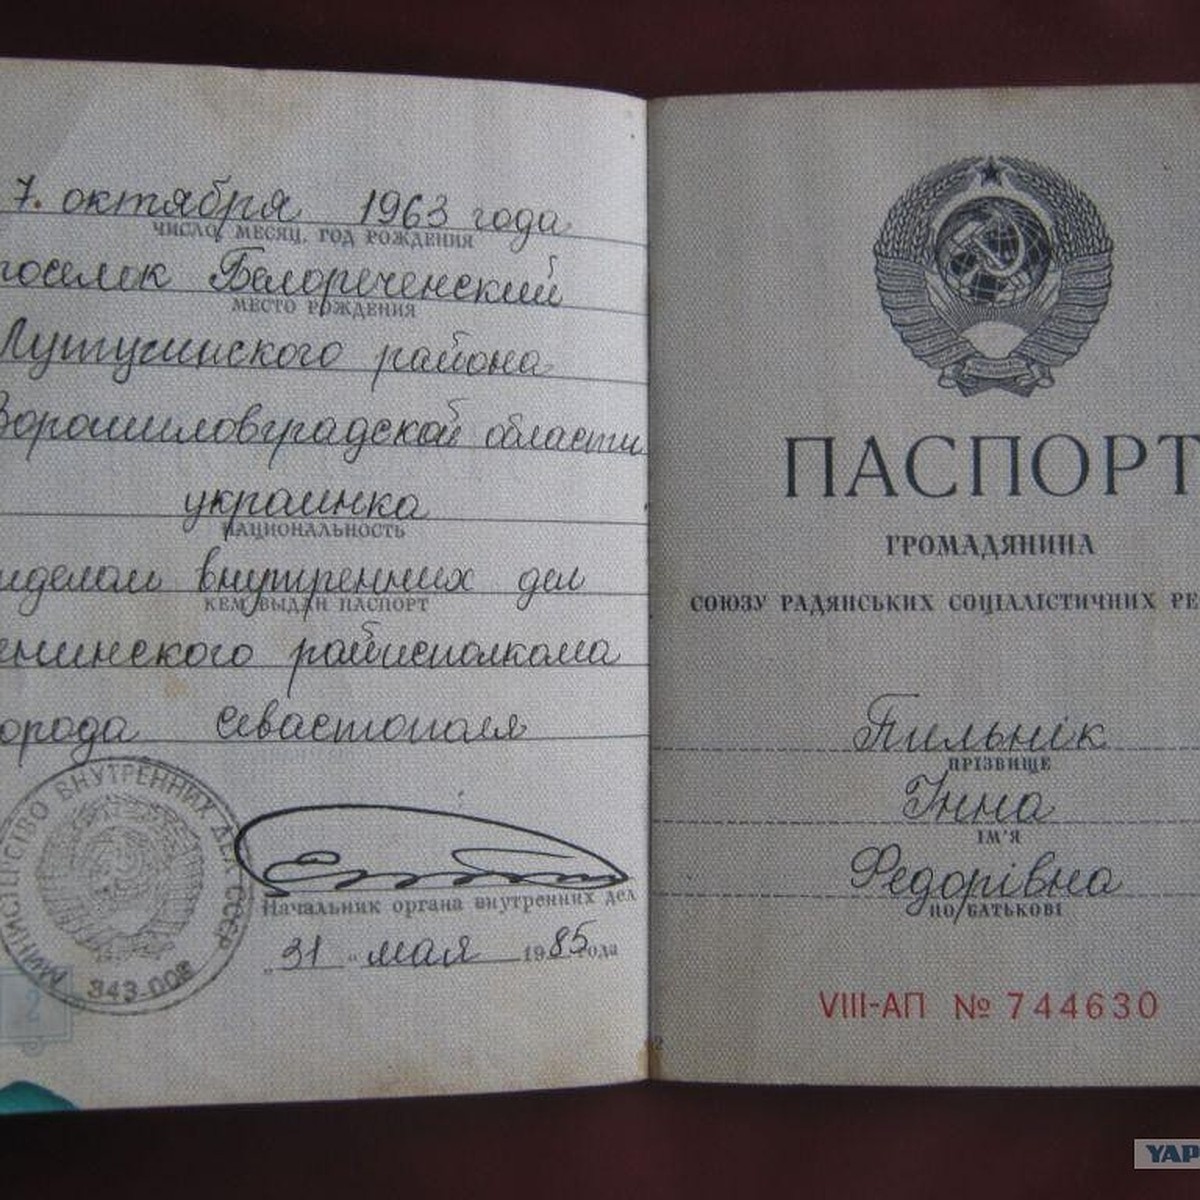 7. октября 1963 года
ЧИСЛО, МЕСЯЦ, ГОД РОЖДЕНИЯ
поселок Белореченский
МЕСТО РОЖДЕНИЯ
Лутугинского района
Ворошиловградской области
украинка
НАЦИОНАЛЬНОСТЬ
отделом внутренних дел
КЕМ ВЫДАН ПАСПОРТ
Ленинского райисполкома
города Севастополя
МИНИСТЕРСТВО ВНУТРЕННИХ ДЕЛ СССР
343-008
Начальник органа внутренних дел
„31“ мая 1985 года
2
ПАСПОРТ
ГРОМАДЯНИНА
СОЮЗУ РАДЯНСЬКИХ СОЦІАЛІСТИЧНИХ РЕ
Пильнік
ПРІЗВИЩЕ
Інна
ІМ'Я
Федорівна
ПО БАТЬКОВІ
VIII-АП № 744630
YAP